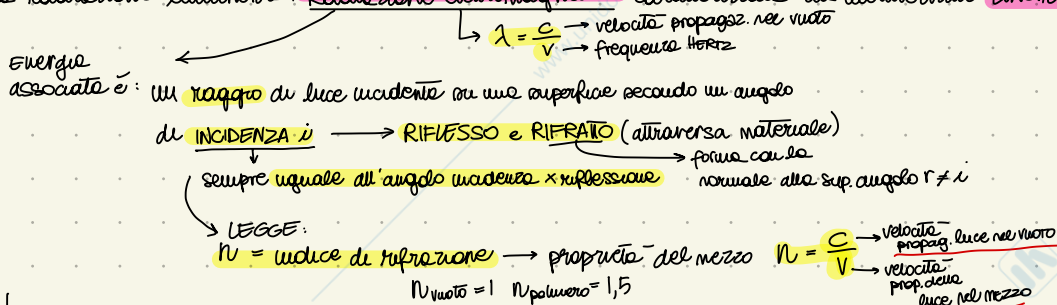 λ = c/ν → velocità propagaz. nel vuoto
→ frequenza HERTZ
Energia
associata è: un raggio di luce incidente su una superficie secondo un angolo
di INCIDENZA i → RIFLESSO e RIFRATTO (attraversa materiale)
→ forma con la
sempre uguale all'angolo incidenza x riflessione normale alla sup. angolo r ≠ i
LEGGE:
n = indice di rifrazione → proprietà del mezzo n = C/V → velocità propag. luce nel vuoto
→ velocità prop. della luce nel mezzo
n vuoto = 1 n polimero = 1,5